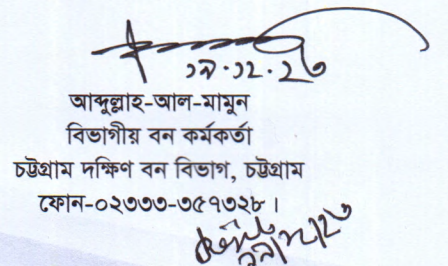 ১৯.১২.২৩
আব্দুল্লাহ-আল-মামুন
বিভাগীয় বন কর্মকর্তা
চট্টগ্রাম দক্ষিণ বন বিভাগ, চট্টগ্রাম
ফোন-০২৩৩৩-৩৫৭৩২৮ ।